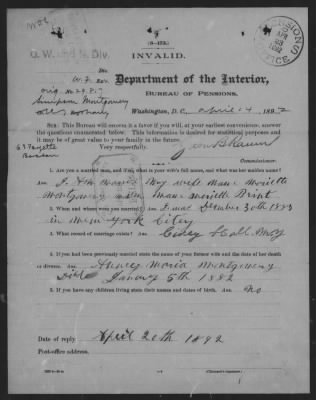 O. W. and N. Div.
(3-173.)
INVALID.
PENSIONS
APR
1892
OFFICE
W. F. Ex'r.
Department of the Interior,
BUREAU OF PENSIONS,
Simpson Montgomery
Washington, D. C., April 4, 1892
SIR: This Bureau will esteem it a favor if you will, at your earliest convenience, answer
the questions enumerated below. This information is desired for statistical purposes and it
may be of great value to your family in the future.
Very respectfully,
Green B Raum
Commissioner.
1. Are you a married man, and, if so, what is your wife's full name, and what was her maiden name?
Ans. I Am married My wife Name
Montgomery
2. When and where were you married? Ans. I was December 30th 1883
in New York City
3. What record of marriage exists? Ans. City Hall
4. If you had been previously married state the name of your former wife and the date of her death
or divorce. Ans. Maria Montgomery
Died January 5th 1882
5. If you have any children living state their names and dates of birth. Ans. No
Date of reply April 20th 1892
Post-office address.
(Claimant's signature.)